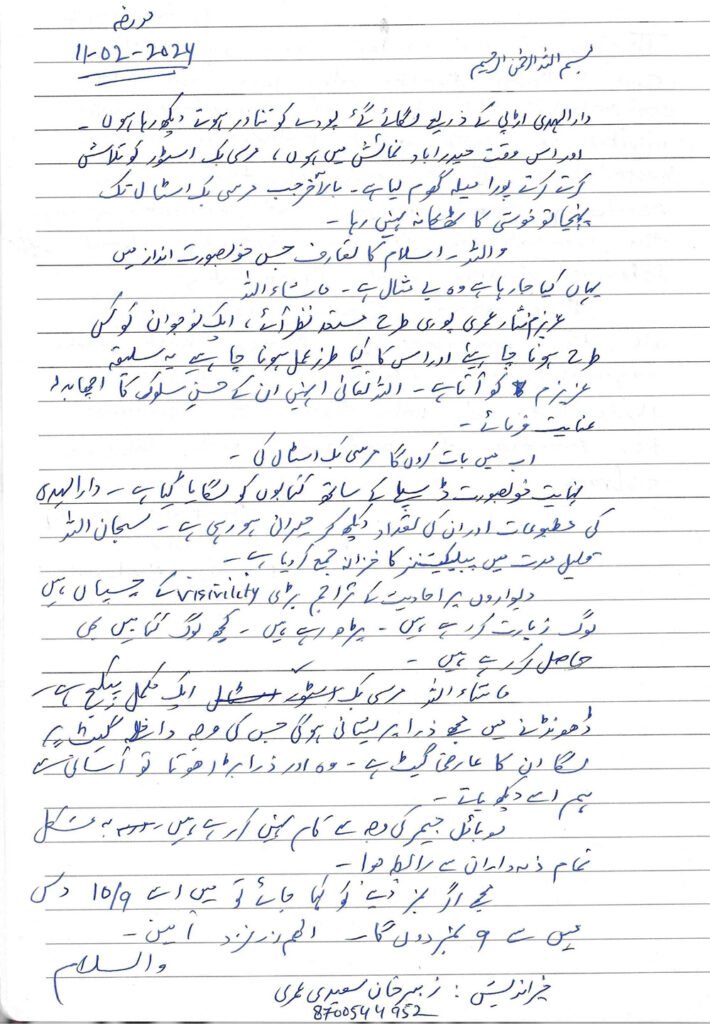 مورخہ
11-02-2024
بسم اللہ الرحمن الرحیم
دارالہدی اڑپی کے ذریعے لگائے گئے پودے کو تناور ہوتے دیکھ رہا ہوں ۔
اور اس وقت حیدرآباد نمائش میں ہوں ، مرسی بک اسٹور کو تلاش
کرتے کرتے پورا میلہ گھوم لیا ہے ۔ بالآخر جب مرسی بک اسٹال تک
پہنچا تو خوشی کا ٹھکانہ نہیں رہا ۔
واللہ ۔ اسلام کا تعارف جس خوبصورت انداز میں
یہاں کیا جا رہا ہے وہ بے مثال ہے ۔ ماشاء اللہ
عزیزم نثار عمری پوری طرح مستعد نظر آئے ، ایک نوجوان کو کس
طرح ہونا چاہیئے اور اس کا کیا طرز عمل ہونا چاہیے یہ سلیقہ
عزیزم کو آتا ہے ۔ اللہ تعالیٰ انہیں ان کے حسن سلوک کا اچھا بدلہ
عنایت فرمائے ۔
اب میں بات کروں گا مرسی بک اسٹال کی ۔
نہایت خوبصورت ڈسپلے کے ساتھ کتابوں کو لگایا گیا ہے ۔ دارالہدی
کی مطبوعات اور ان کی تعداد دیکھ کر حیرانی ہو رہی ہے ۔ سبحان اللہ
قلیل مدت میں پبلیکیشنز کا خزانہ جمع کر دیا ہے ۔
دیواروں پر احادیث کے تراجم بڑی visivility کے چسپاں ہیں
لوگ زیارت کر رہے ہیں ۔ پڑھ رہے ہیں ۔ کچھ لوگ کتابیں بھی
حاصل کر رہے ہیں ۔
ماشاء اللہ مرسی بک اسٹور ایک مکمل پیکیج ہے ۔
ڈھونڈنے میں مجھے ذرا پریشانی ہوئی جس کی وجہ داخلہ گیٹ پہ
لگا ان کا عارضی گیٹ ہے ۔ وہ اور ذرا بڑا ہوتا تو آسانی سے
ہم اسے دیکھ پاتے ۔
موبائل جیمر کی وجہ سے کام نہیں کر رہے ہیں بہ مشکل
تمام ذمہ داران سے رابطہ ہوا ۔
مجھے اگر نمبر دینے کو کہا جائے تو میں اسے 10/9 دس
میں سے 9 نمبر دوں گا ۔ اللھم زد فزد آمین ۔
والسلام
خیر اندیش : زبیر خان سعیدی عمری
8700544952